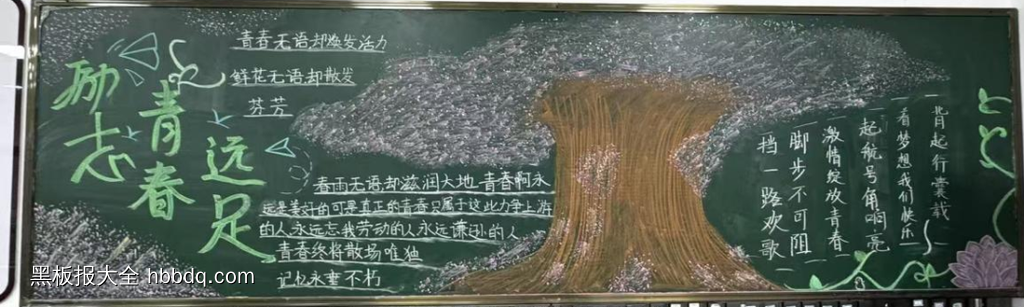 励志
青春
远足
青春无语却焕发活力
鲜花无语却散发
芬芳
春雨无语却滋润大地 青春啊永
远是美好的可是真正的青春只属于这些力争上游
的人永远忘我劳动的人永远谦逊的人
青春终将散场唯独
记忆永垂不朽
背起行囊载
着梦想我们快乐
起航号角响亮
激情绽放青春
脚步不可阻
挡一路欢歌
黑板报大全 hbbdq.com